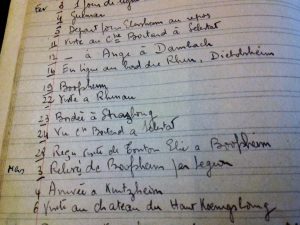 Fev 3 1 jour de
4 Guemar
5 Départ pour Elsenheim au repos
11 Visite au Cne Bontand à Sélestat
12 — à Ange à Dambach
16 En ligne au bord du Rhin, Diebolsheim
19 Boofzheim
22 Visite à Rhinau
23 Bordée à Strasbourg
24 Vu Cne Bontand à Sélestat
28 Reçu visite de Tonton Elie à Boofzheim
Mars 3 Relevé de Boofzheim par Legion
4 Arrivée à Kuntzheim
6 Visite au chateau du Haut Koenigsbourg